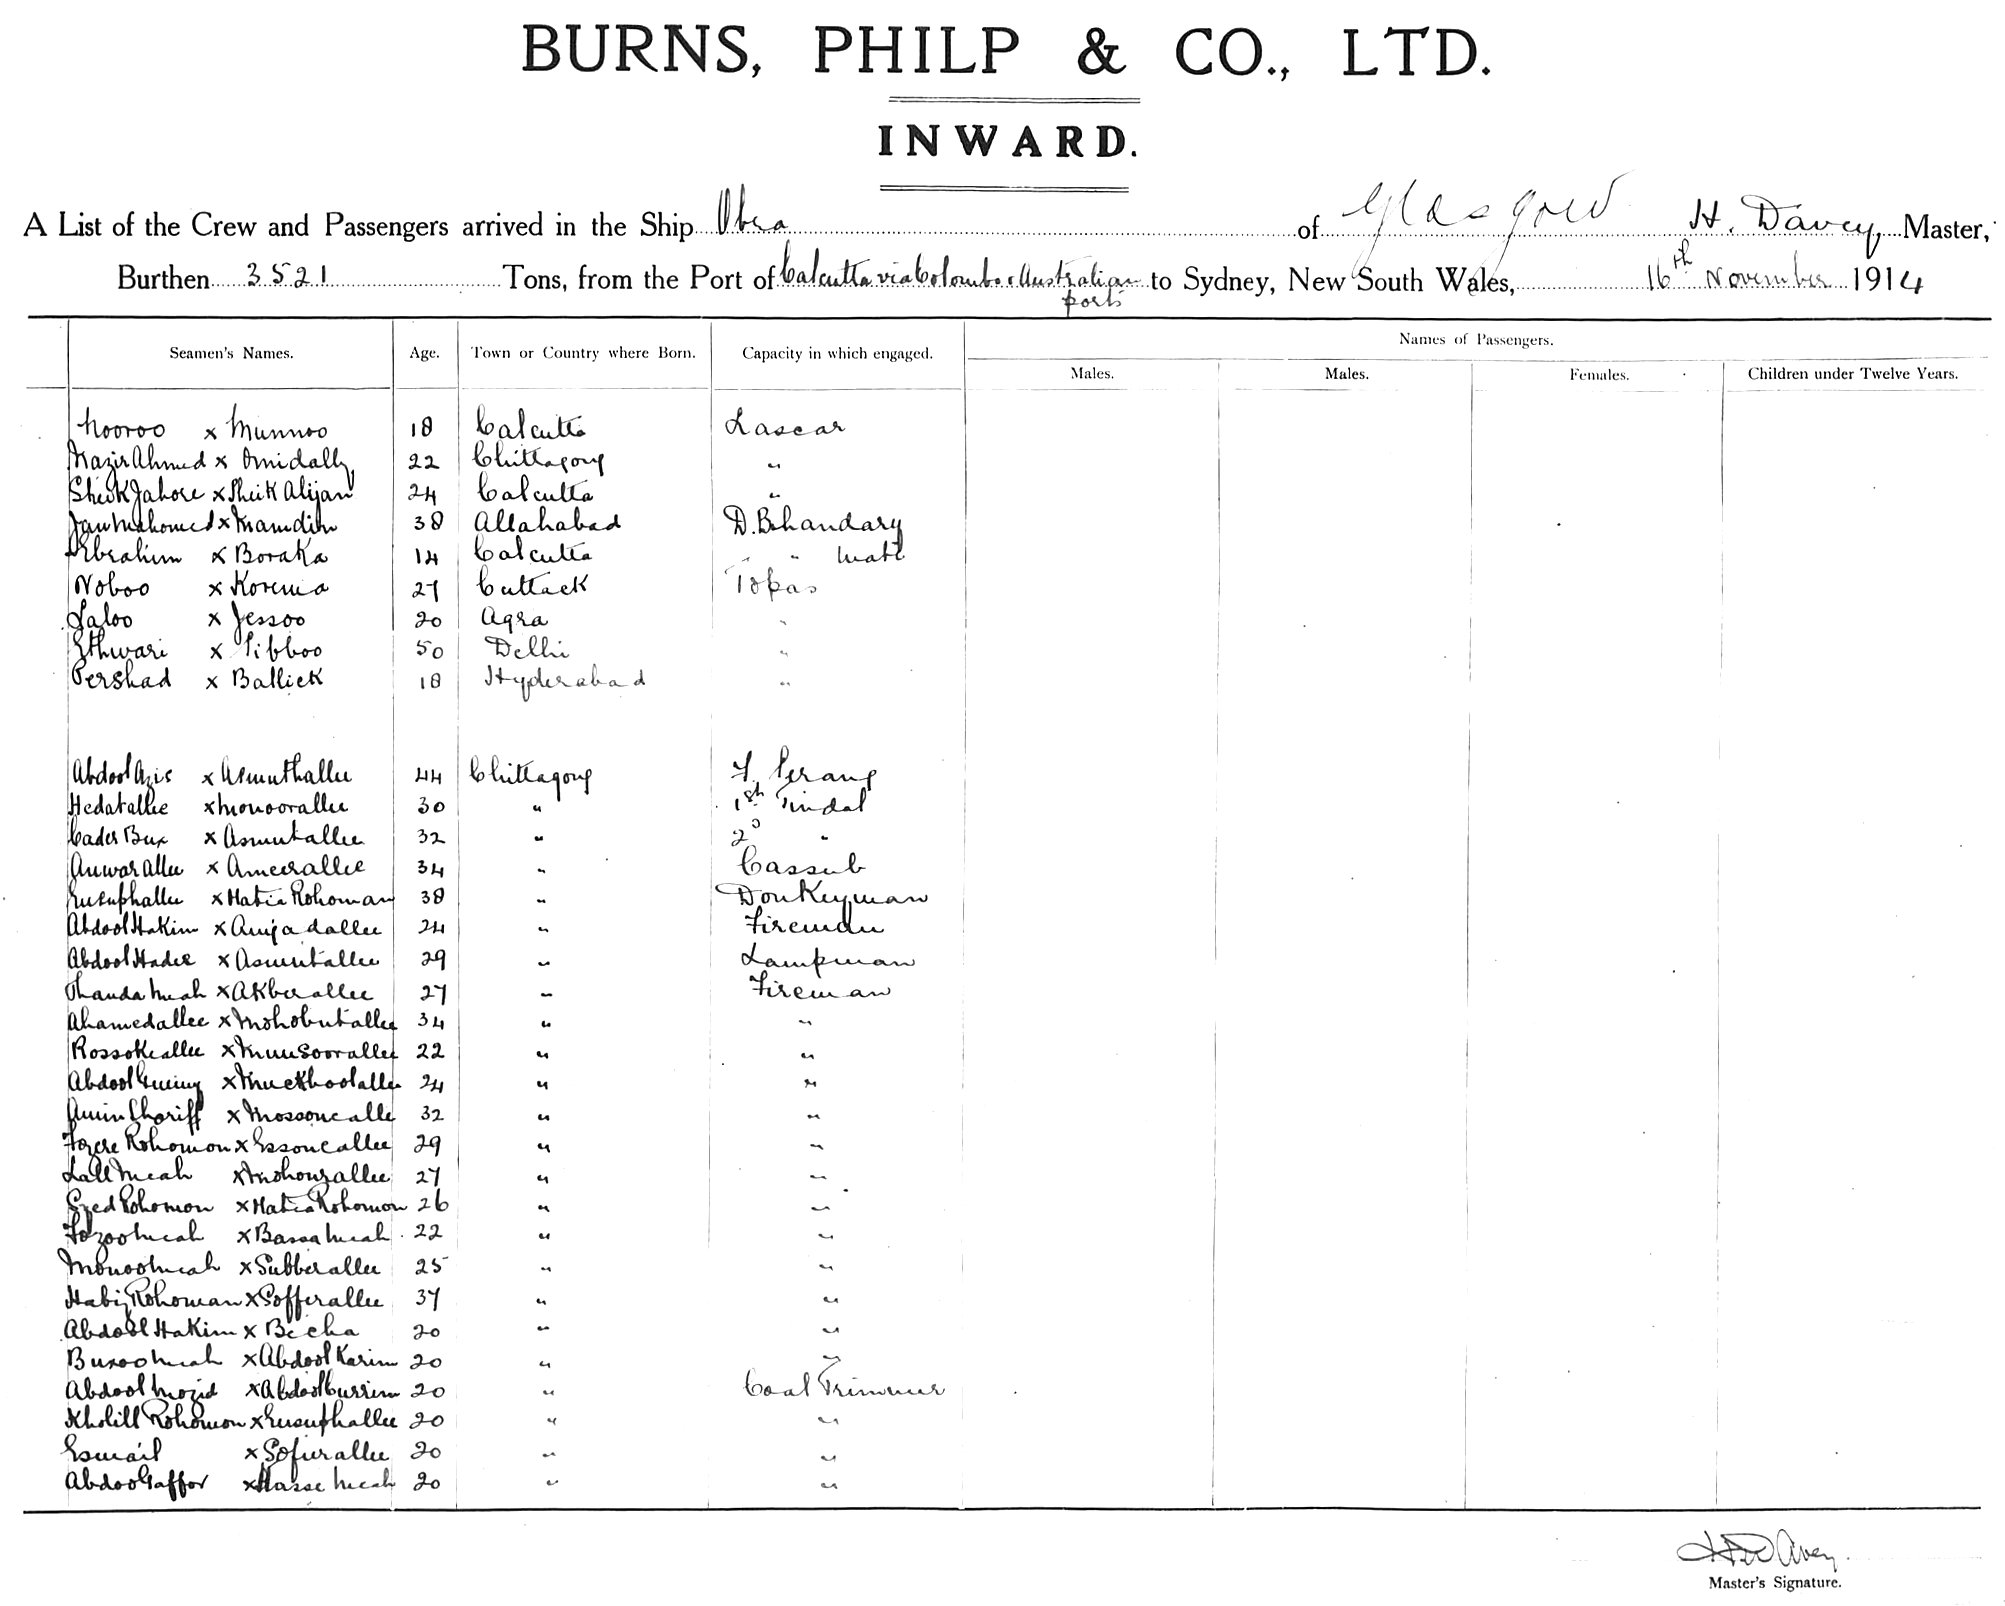 BURNS, PHILP & CO., LTD.
INWARD.
A List of the Crew and Passengers arrived in the Ship Obra of Glasgow H. Davey, Master,
Burthen 3521 Tons, from the Port of Calcutta via Colombo & Australian ports to Sydney, New South Wales, 16th November 1914
Seamen's Names. Age. Town or Country where Born. Capacity in which engaged. Names of Passengers.
Males. Males. Females. Children under Twelve Years.
Nooroo x Munnoo 18 Calcutta Lascar
Nazir Ahmed x Omidally 22 Chittagong "
Sheik Jahore x Sheik Alijan 24 Calcutta "
Jan Mahomed x Ramdin 38 Allahabad D. Bhandary
Ebrahim x Boraka 14 Calcutta " " Mate
Noboo x Korema 27 Cuttack Topas
Laloo x Jessoo 20 Agra "
Ethwari x Sibboo 50 Delhi "
Pershad x Ballick 18 Hyderabad "
Abdool Azis x Asmuthallee 44 Chittagong F. Serang
Hedatallee x Monoorallee 30 " 1st Tindal
Cader Bux x Asmutallee 32 " 2d "
Anwar Allee x Ameerallee 34 " Cassub
Eusuphallee x Hatia Rohoman 38 " Donkeyman
Abdool Hakim x Amjadallee 24 " Fireman
Abdool Hadee x Asmutallee 29 " Lampman
Thanda Meah x Akberallee 27 " Fireman
Ahamedallee x Mohobutallee 34 " "
Rossokeallee x Munsoorallee 22 " "
Abdool x Muckboolallee 24 " "
Amin Shariff x Mossoneallee 32 " "
Fozere Rohomon x Essoneallee 29 " "
Lall Meah x Mohourallee 27 " "
Syed Rohomon x Hatia Rohomon 26 " "
Fozoo Meah x Bassa Meah 22 " "
Monoo Meah x Subberallee 25 " "
Habiz Rohoman x Gofferallee 37 " "
Abdool Hakim x Becha 20 " "
Buxoo Meah x Abdool Karim 20 " "
Abdool Mozid x Abdool Currim 20 " Coal Trimmer
Kholill Rohomon x Eusuphallee 20 " "
Esmail x Gofurallee 20 " "
Abdool Gaffor x Hasse Meah 20 " "
H Davey
Master's Signature.